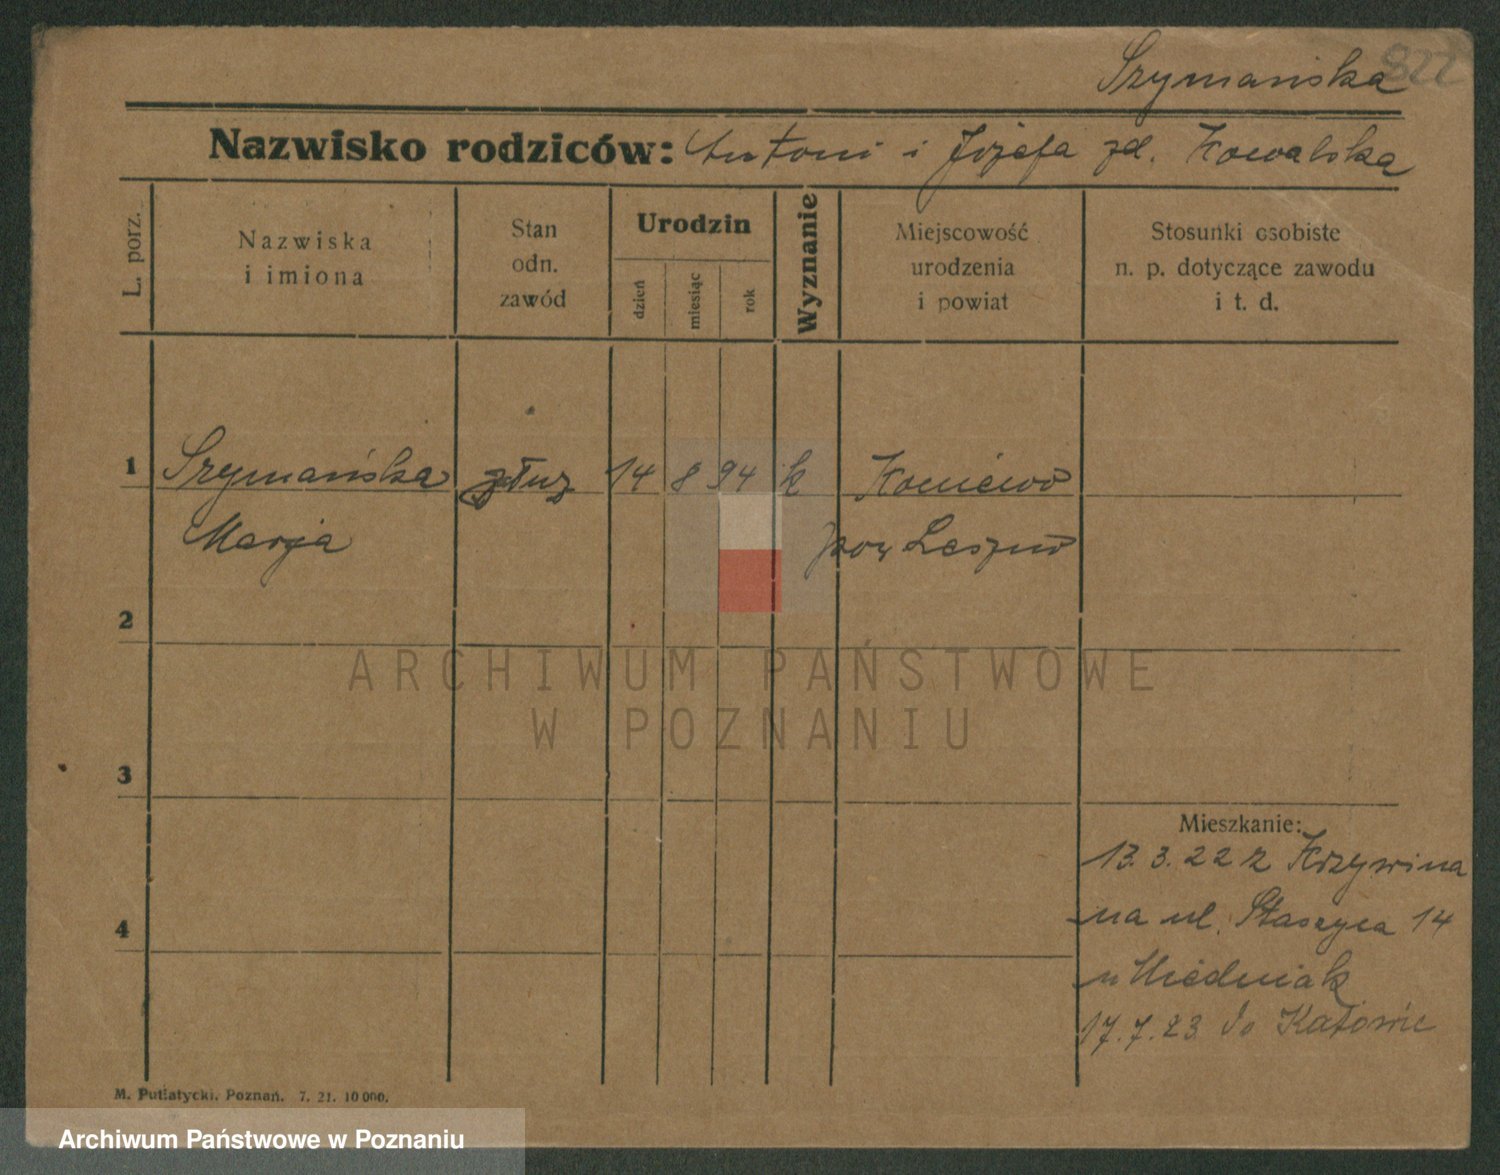 822
Szymańska
Nazwisko rodziców: Antoni i Józefa zd. Kowalska
L. porz.
Nazwiska
i imiona
Stan
odn.
zawód
Urodzin
dzień
miesiąc
rok
Wyznanie
Miejscowość
urodzenia
i powiat
Stosunki osobiste
n. p. dotyczące zawodu
i t. d.
1 Szymańska służ 14 8 94 k
Marja pow Leszno
2
3
Mieszkanie:
13.3.22 z Krzywina
4 na ul. Staszyca 14
u
17.7.23 do Katowic
M. Putiatycki. Poznań. 7. 21. 10 000.
ARCHIWUM PAŃSTWOWE
W POZNANIU
Archiwum Państwowe w Poznaniu